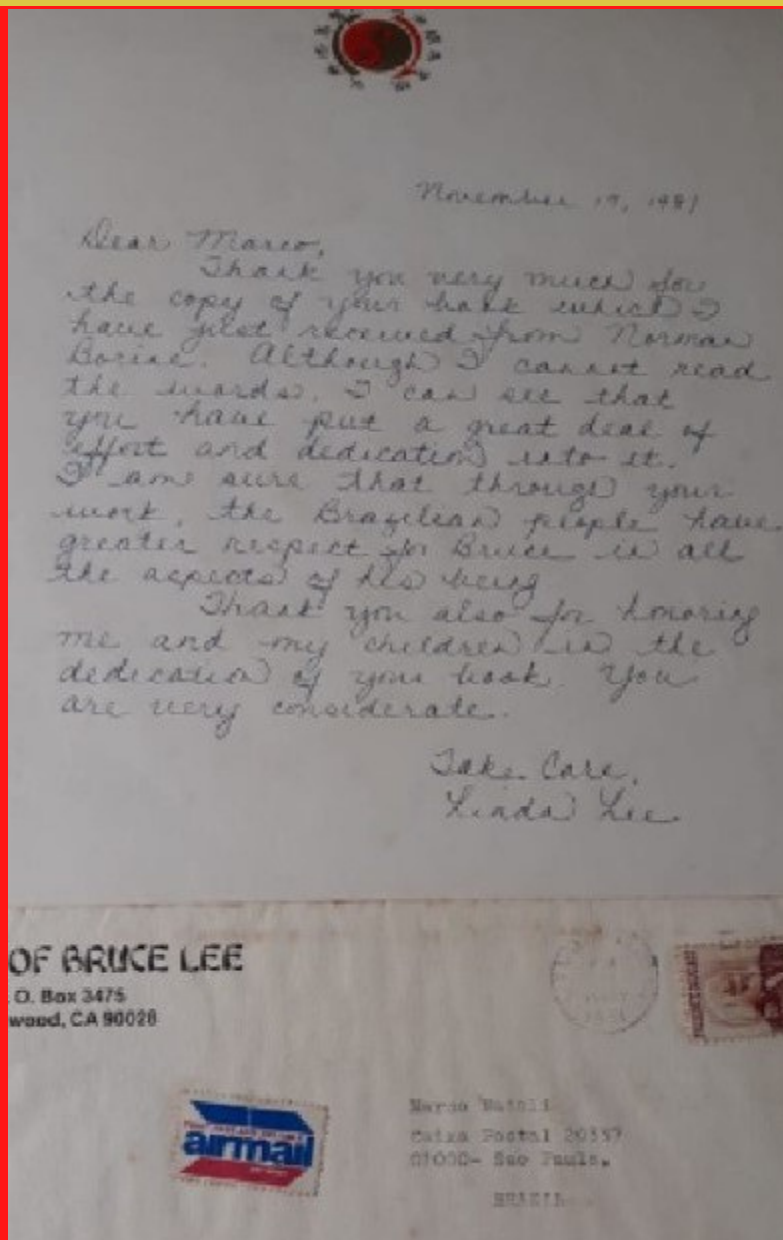 November 19, 1981
Dear Marco,
Thank you very much for
the copy of your book which I
have just received from Norman
Borine. Although I cannot read
the words, I can see that
you have put a great deal of
effort and dedication into it.
I am sure that through your
work, the Brazilian people have
greater respect for Bruce in all
the aspects of his being
Thank you also for honoring
me and my children in the
dedication of your book. You
are very considerate.
Take Care,
Linda Lee
OF BRUCE LEE
. O. Box 3475
wood, CA 90028
airmail
Marco Natali
Caixa Postal 20357
01000- Sao Paulo.
BRAZIL